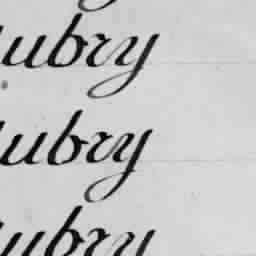 ubry
ubry
ubry